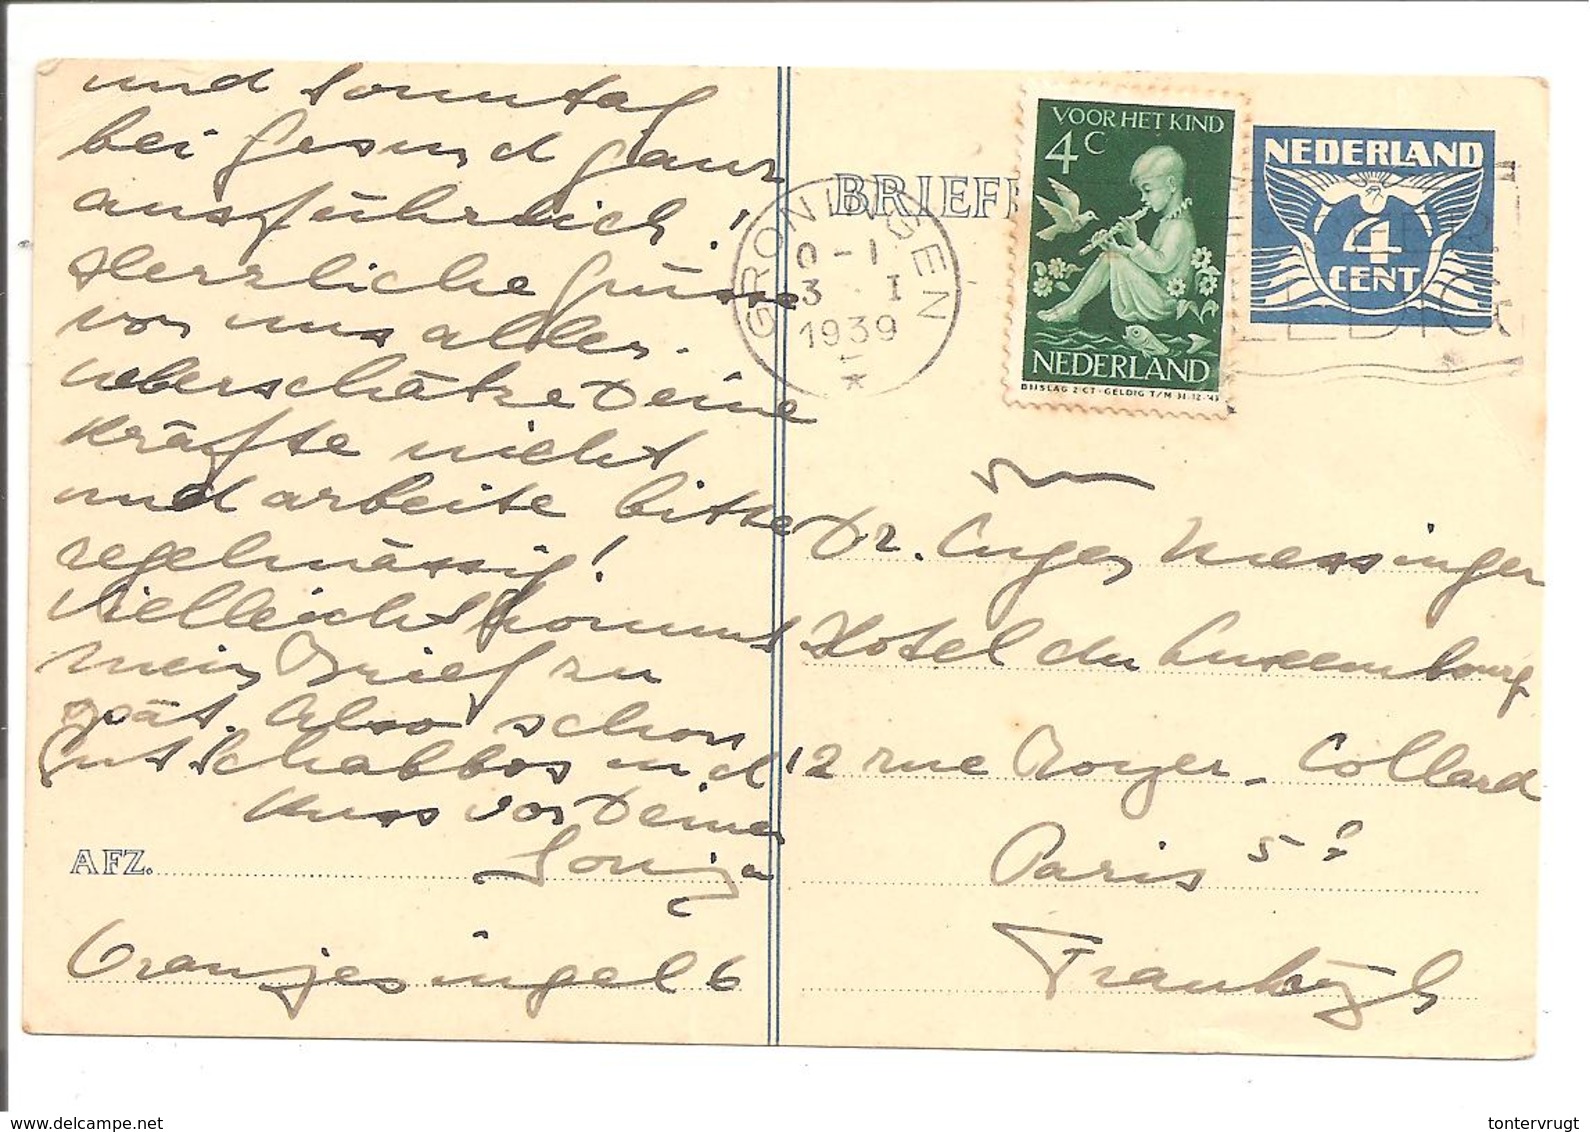 und Sonntag
bei Gesund ganz
ausführlich!
Herzliche Grüsse
von uns allen.
Ueberschätze Deine
Kräfte nicht
und arbeite bitte
regelmässig!
Vielleicht kommt
mein Brief zu
spät. Also schon
gut Schabbos und
Kuss von Deiner
Sonja
AFZ.
Oranjesingel 6
BRIEF
GRONINGEN
0-1
3 I
1939
VOOR HET KIND
4 C
NEDERLAND
BIJSLAG 2 CT - GELDIG T/M 31-12-'43
NEDERLAND
4
CENT
Dr. Messinger
Hotel du Luxembourg
12 rue Royer-Collard
Paris 5e
Frankrijk
delcampe.net
tontervrugt